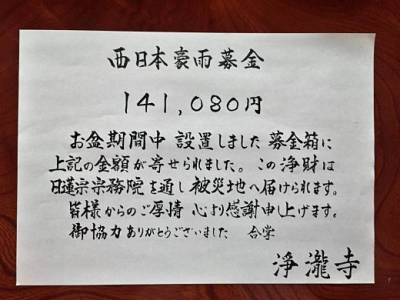 西日本豪雨募金
141,080円
お盆期間中 設置しました 募金箱に
上記の金額が寄せられました。この浄財は
日蓮宗宗務院を通し 被災地へ届けられます。
皆様からのご厚情 心より感謝申し上げます。
御協力 ありがとうございました 合掌
浄瀧寺